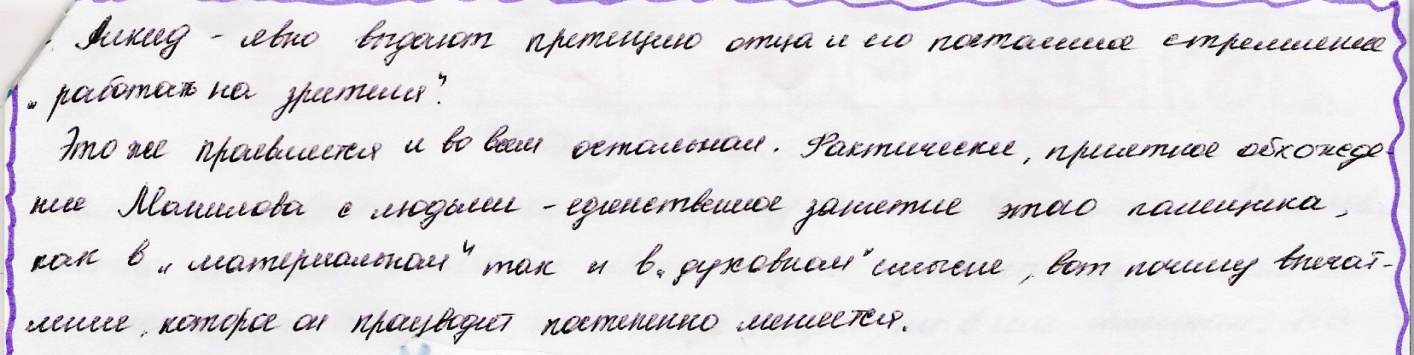 Алкид - явно выдают претензию отца и его постоянное стремление
„работать на зрителя".
Это же проявляется и во всем остальном. Фактически, приятное обхожде-
ние Манилова с людьми - единственное занятие этого помещика,
как в „материальном" так и в „духовном" смысле, вот почему впечат-
ление, которое он производит постепенно меняется.